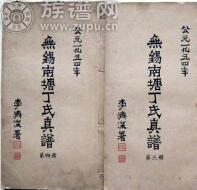 族谱网
www.zupu.cn
公元一九五四年
無錫南塘丁氏真譜
李濟深署
第四冊
公元一九五四年
無錫南塘丁氏真譜
李濟深署
第三冊